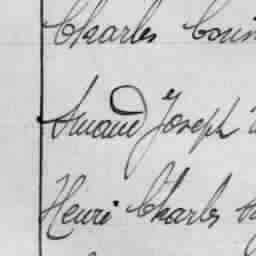 Charles
Amand Joseph
Henri Charles